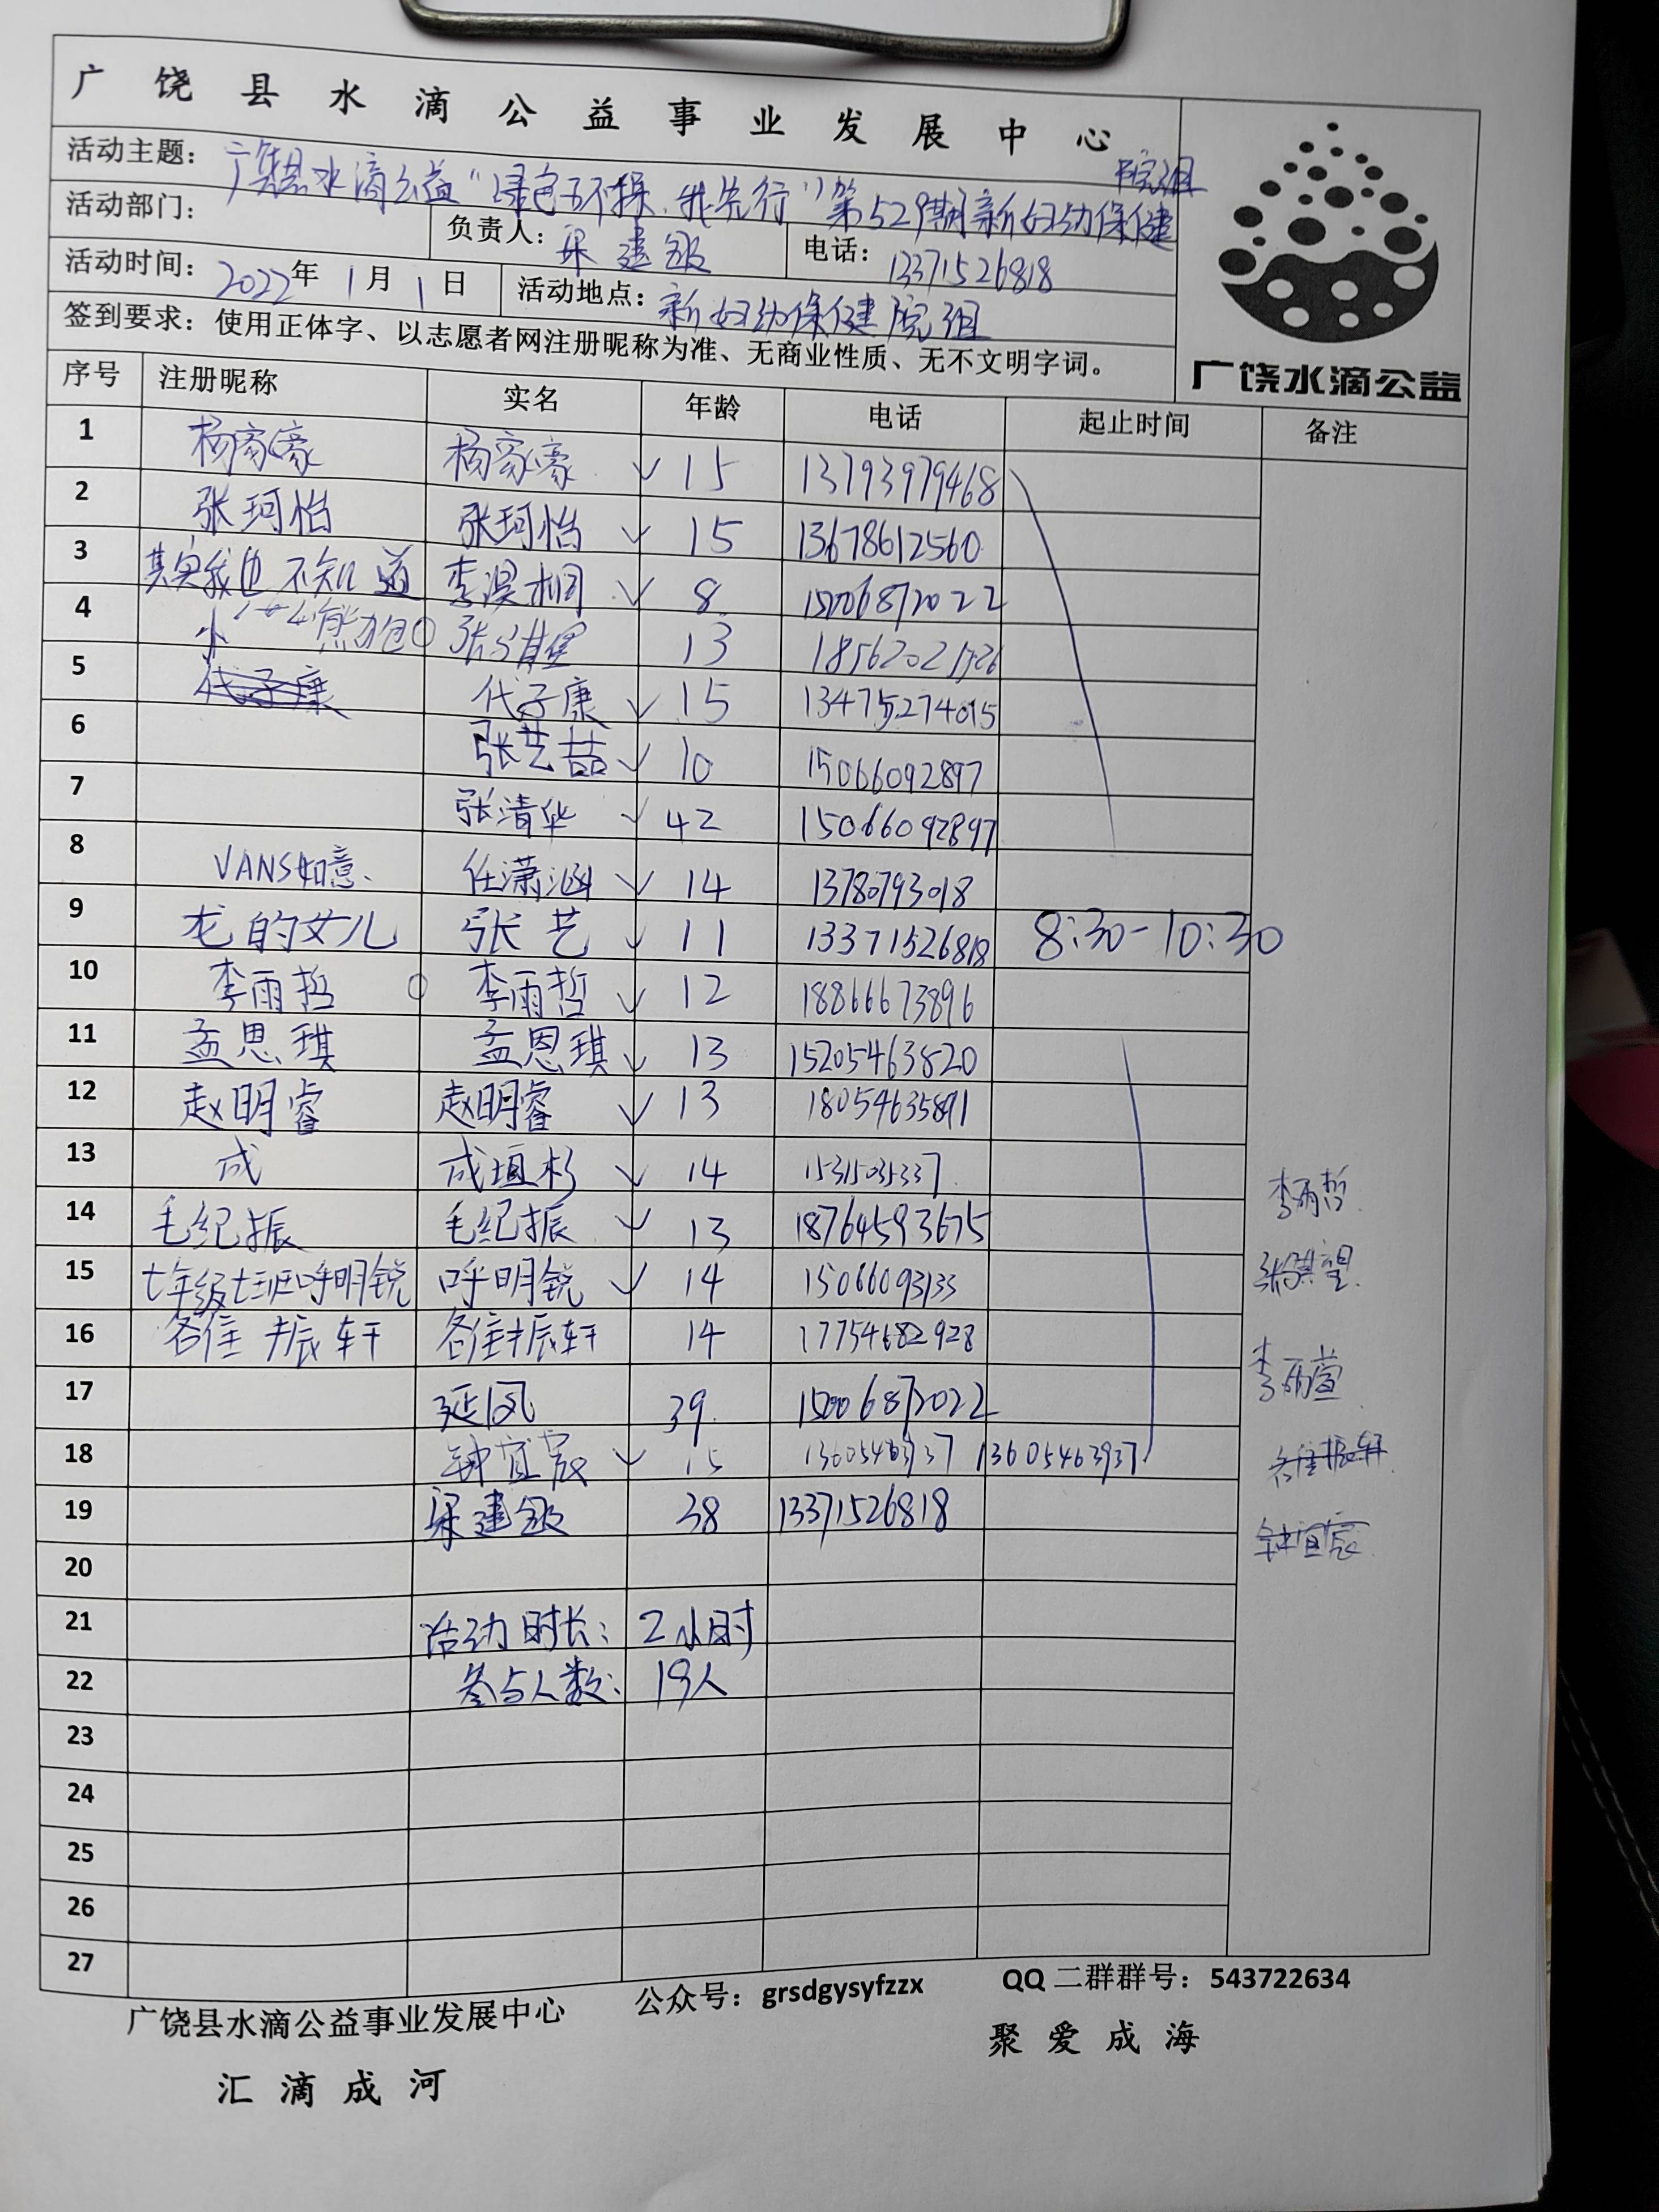 广饶县水滴公益事业发展中心
活动主题：广饶县水滴公益“绿色五不操，我先行”第529期新妇幼保健院组
活动部门： 负责人：梁建敏 电话：13371526818
活动时间：2022年1月1日 活动地点：新妇幼保健院组
签到要求：使用正体字、以志愿者网注册昵称为准、无商业性质、无不文明字词。
广饶水滴公益
序号 注册昵称 实名 年龄 电话 起止时间 备注
1 杨家豪 杨家豪 ✓ 15 13793979468
2 张珂怡 张珂怡 ✓ 15 13678612560
3 其实我也不知道 李淏桐 ✓ 8 15006872022
4 小 13
5 代子康 代子康 ✓ 15 13475274015
6 张艺喆 ✓ 10 15066092897
7 张清华 ✓ 42 15066092897
8 VANS如意、 任潇汹 ✓ 14 13780793018
9 龙的女儿 张艺 ✓ 11 13371526818 8:30-10:30
10 李雨哲 李雨哲 ✓ 12 18866673896
11 孟思琪 孟恩琪 ✓ 13 15205463820
12 赵明睿 赵明睿 ✓ 13 18054635891
13 成 成垣杉 ✓ 14 15315035337
李雨哲
14 毛纪振 毛纪振 ✓ 13 18764593675
15 七年级七班呼明锐 呼明锐 ✓ 14 15066093133
16 各住振轩 各住振轩 14 17754682928
李雨萱
17 延凤 39 15006872022
18 钟宜宸 ✓ 15 13605463937 13605463937
各住振轩
19 梁建敏 38 13371526818
钟宜宸
20
21 活动时长： 2小时
22 参与人数： 19人
23
24
25
26
27
广饶县水滴公益事业发展中心 公众号：grsdgysyfzzx QQ 二群群号：543722634
汇滴成河 聚爱成海